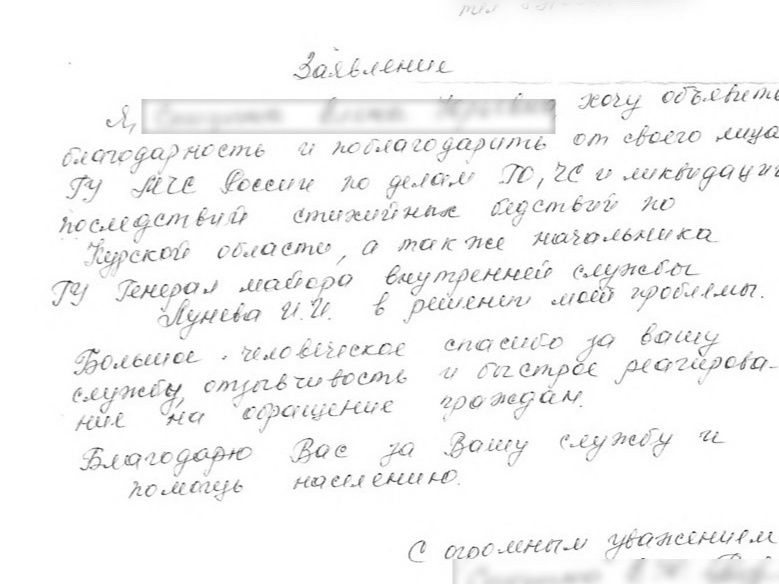 тел
Заявление
Я, хочу объявить
благодарность и поблагодарить от своего лица
ГУ МЧС России по делам ГО, ЧС и ликвидации
последствий стихийных бедствий по
Курской области, а также начальника
ГУ Генерал майора внутренней службы
Лунева И.И. в решении моей проблемы.
Большое человеческое спасибо за вашу
службу, отзывчивость и быстрое реагирова-
ние на обращение граждан.
Благодарю Вас за Вашу службу и
помощь населению.
С огромным уважением